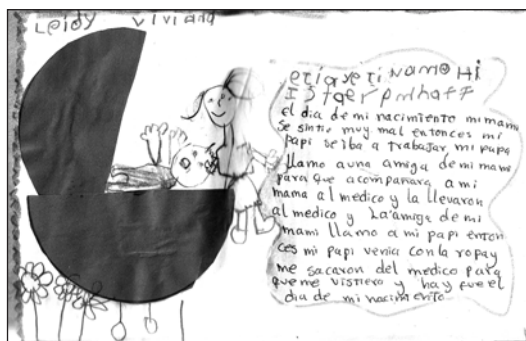 Leidy viviana
el dia de mi nacimiento mi mama
se sintio muy mal entonces mi
papi se iba a trabajar mi papa
llamo a una amiga de mi mami
para que acompañara a mi
mama al medico y la llevaron
al medico y La amiga de mi
mami llamo a mi papi enton
ces mi papi venia con la ropa y
me sacaron del medico para
que me vistiero y hay fue el
dia de mi nacimiento